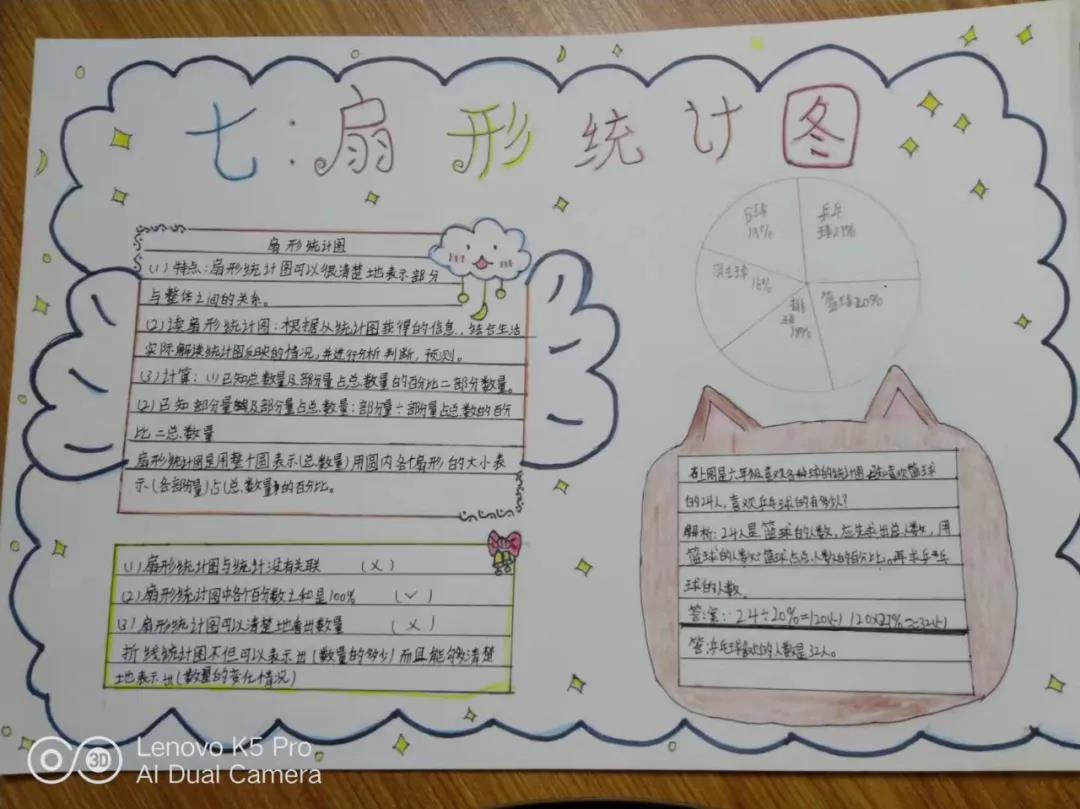 七:扇形统计图
扇形统计图
(1)特点:扇形统计图可以很清楚地表示部分
与整体之间的关系。
(2)读扇形统计图:根据从统计图获得的信息,结合生活
实际解读统计图反映的情况,并进行分析判断,预测。
(3)计算:(1)已知总数量及部分量占总数量的百分比=部分数量。
(2)已知部分量及部分量占总数量:部分量÷部分量占总数的百分
比=总数量
扇形统计图是用整个圆表示(总数量)用圆内各个扇形的大小表
示(各部分量)占(总数量)的百分比。
(1)扇形统计图与统计没有关联 (×)
(2)扇形统计图中各个百分数之和是100% (✓)
(3)扇形统计图可以清楚地看出数量 (×)
折线统计图不但可以表示出(数量的多少)而且能够清楚
地表示出(数量的变化情况)
乒乓
球27%
篮球20%
排
球
足球
19%
16%
右上图是六年级喜欢各种球的统计图,已知喜欢篮球
的24人,喜欢乒乓球的有多少人?
解析:24人是篮球的人数,应先求出总人数,用
篮球的人数÷篮球占总人数的百分比。再求乒乓
球的人数。
答案:24÷20%=120(人) 120×27%≈32(人)
答:乒乓球的人数是32人。
Lenovo K5 Pro
AI Dual Camera